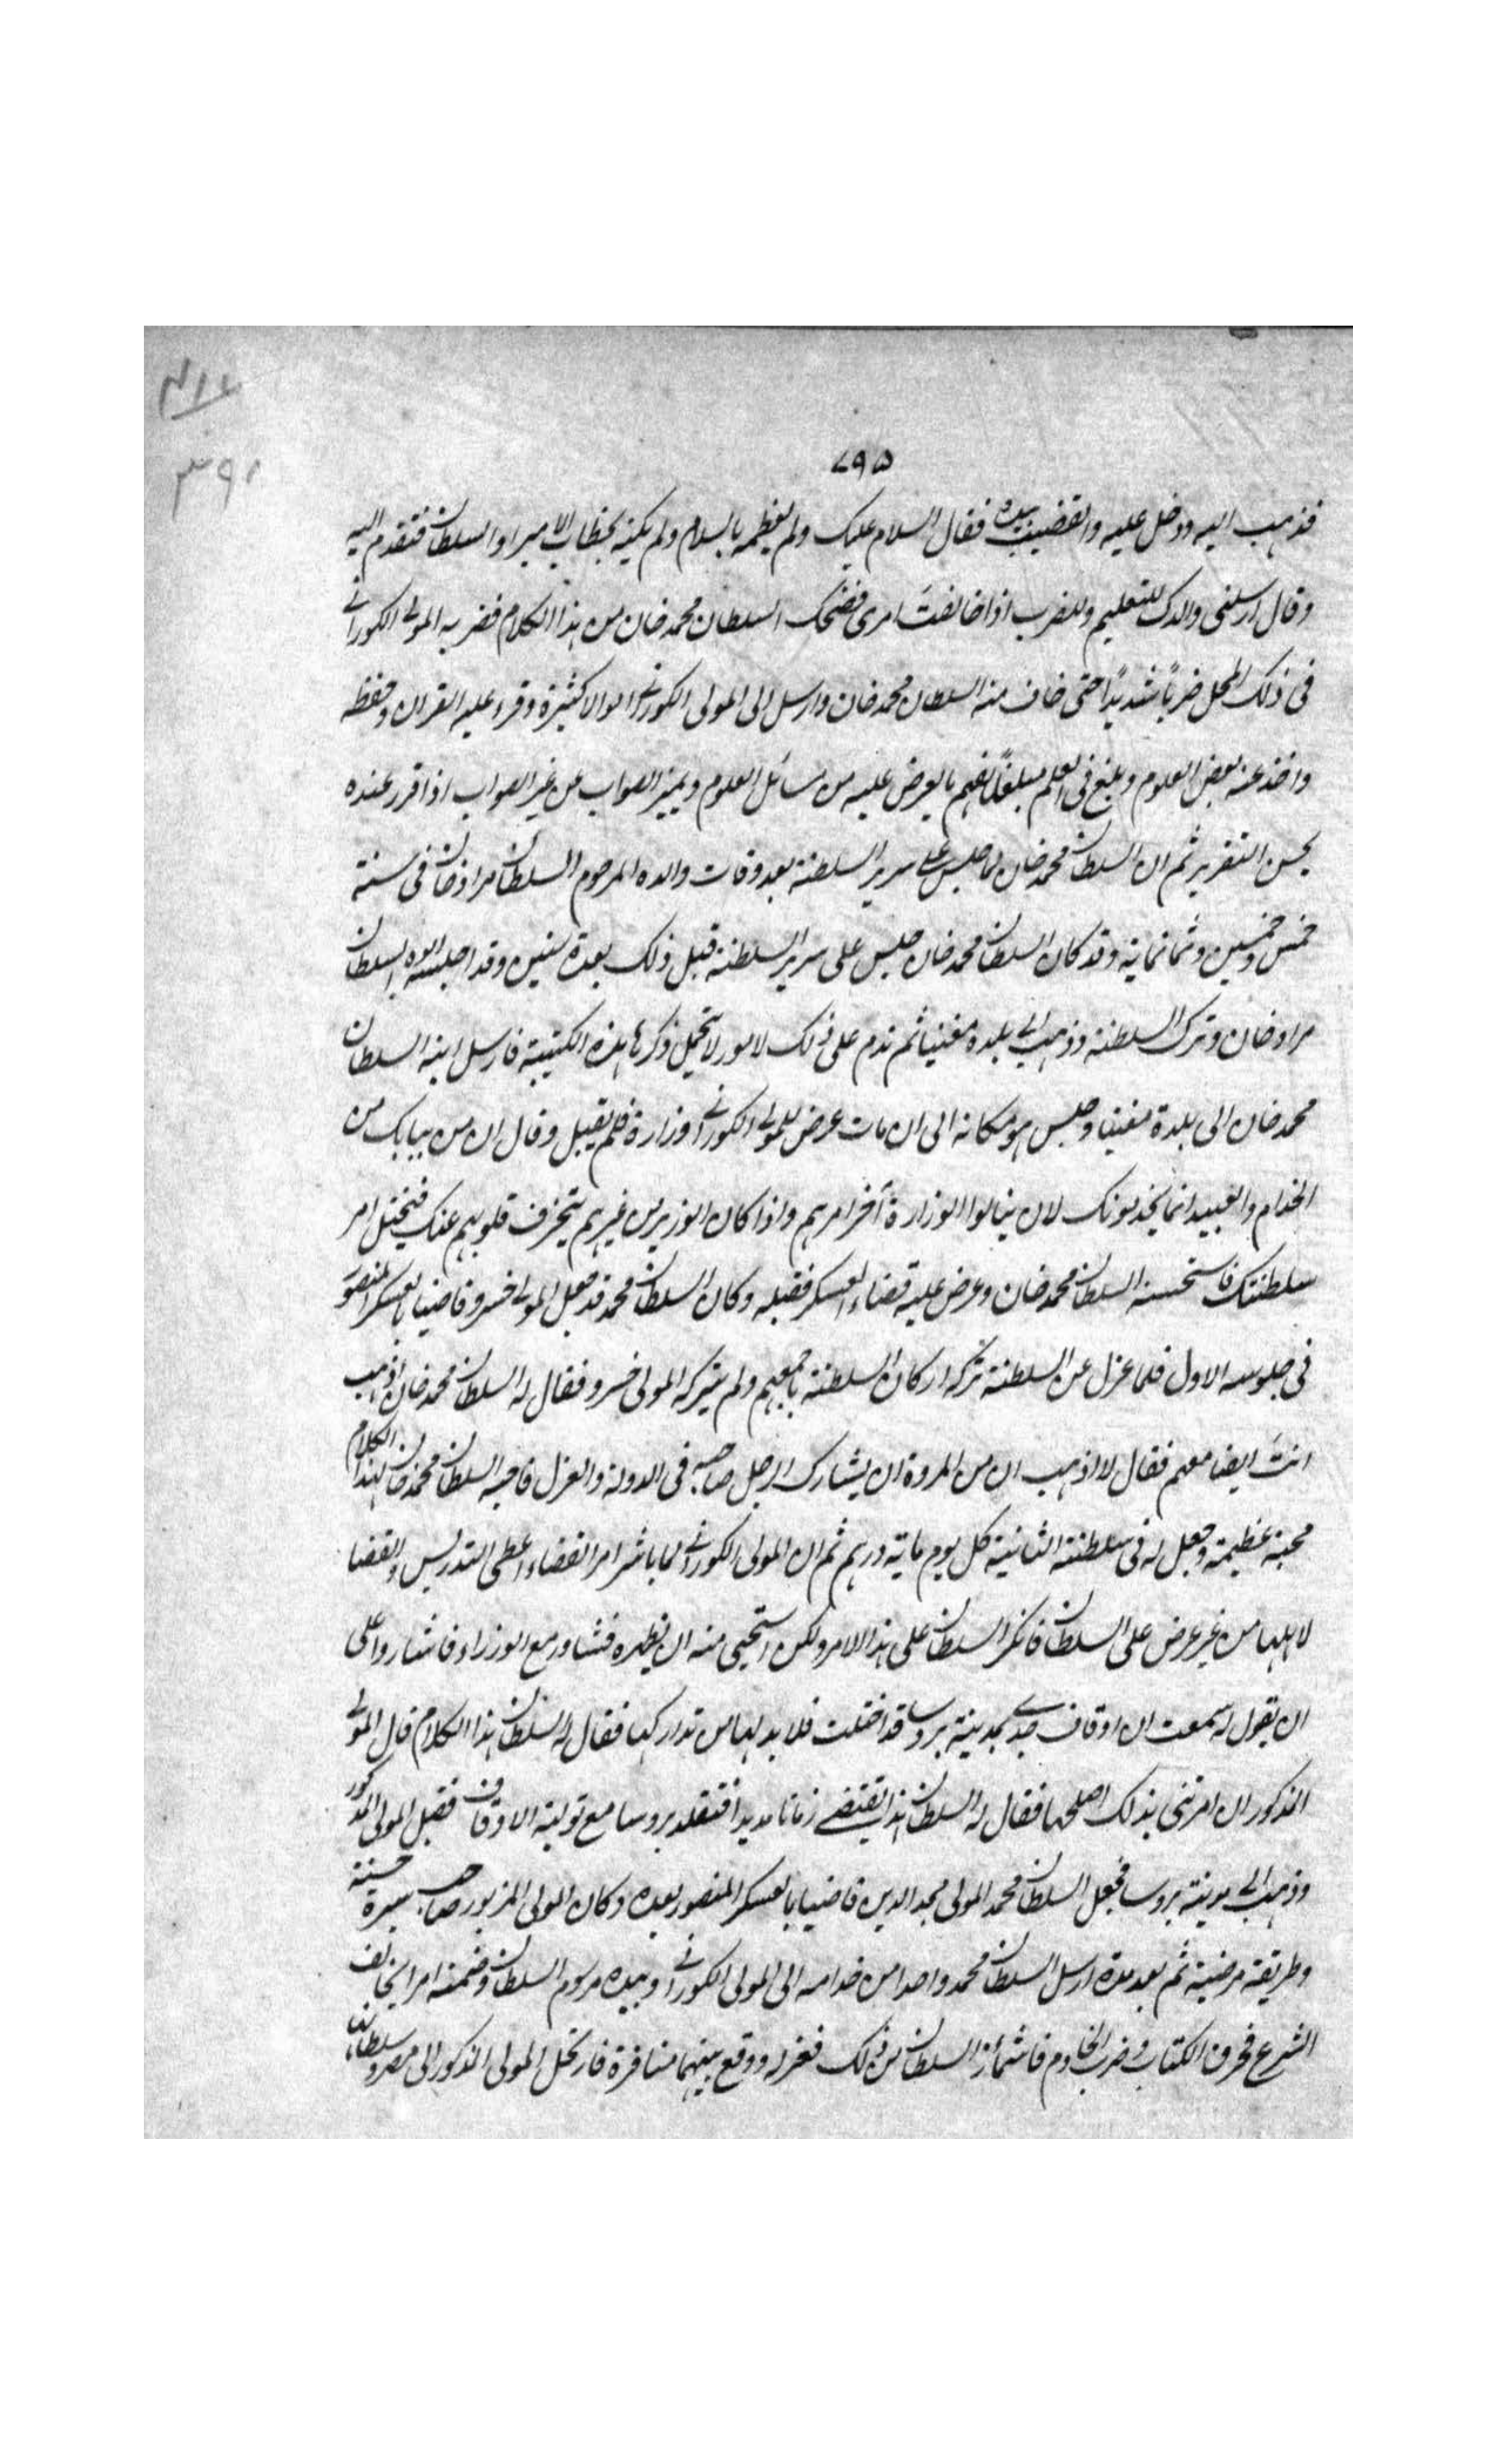 ٧٩٥
٣٩١
فذهب اليه ودخل عليه والقضيب بيده فقال السلام عليك ولم يعظمه بالسلام ولم يكنه بخطاب الامير او السلطان فتقدم اليه
وقال ارسلنى والدك للتعليم وللضرب اذا خالفتَ امرى فضحك السلطان محمد خان من هذا الكلام فضربه المولى الكورانى
فى ذلك المحل ضرباً شديداً حتى خاف منه السلطان محمد خان وارسل الى المولى الكورانى اموالا كثيرة وقرء عليه القران وحفظه
واخذ عنه بعض العلوم وبلغ فى العلم مبلغاً يفهم ما يعرض عليه من مسائل العلوم ويميز الصواب عن غير الصواب اذا قرر عنده
بحسن التقرير ثم ان السلطان محمد خان لما جلس على سرير السلطنة بعد وفات والده المرحوم السلطان مراد خان فى سنة
خمس وخمسين وثمانماية وقد كان السلطان محمد خان جلس على سرير السلطنة قبل ذلك بعدة سنين وقد اجلسه ابوه السلطان
مراد خان وترك السلطنة وذهب الى بلدة مغنيسا ثم ندم على ذلك لامور لا تتحمل ذكرها هذه الكتيبة فارسل ابنه السلطان
محمد خان الى بلدة مغنيسا وجلس هو مكانه الى ان مات عرض للمولى الكورانى الوزارة فلم يقبل وقال ان من ببابك من
الخدام والعبيد انما يخدمونك لان ينالوا الوزارة آخر امرهم واذا كان الوزير من غيرهم يتحرف قلوبهم عنك فيختل امر
سلطنتك فاستحسنه السلطان محمد خان وعرض عليه قضاء العسكر فقبله وكان السلطان محمد قد جعل المولى خسرو قاضيا بالعسكر المنصور
فى جلوسه الاول فلما عزل عن السلطنة تركه اركان السلطنة باجمعهم ولم يتركه المولى خسرو فقال له السلطان محمد خان اذهب
انتَ ايضا معهم فقال لا اذهب ان من المروة ان يشارك الرجل صاحبه فى الدولة والعزل فاحبه السلطان محمد خان لهذا الكلام
محبة عظيمة وجعل له فى سلطنته الثانية كل يوم ماية درهم ثم ان المولى الكورانى لما باشر امر القضاء اعطى التدريس والقضا
لاهلها من غير عرض على السلطان فانكر السلطان على هذا الامر ولكن استحيى منه ان يظهره فشاور مع الوزراء فاشاروا على
ان يقول له سمعت ان اوقاف جدى بمدينة بروسا قد اختلت فلا بد لها من تداركها فقال له السلطان هذا الكلام قال المولى
المذكور ان امرتنى بذلك اصلحها فقال له السلطان هذا يقتضى زمانا مديدا فتقلد بروسا مع تولية الاوقاف فقبل المولى المذكور
وذهب الى مدينة بروسا فجعل السلطان محمد المولى مجد الدين قاضيا بالعسكر المنصور بعده وكان المولى المزبور صاحب سيرة حسنة
وطريقة مرضية ثم بعد مدة ارسل السلطان محمد واحدا من خدامه الى المولى الكورانى وبيده مرسوم السلطان وضمنه امرا يخالف
الشرع فخرق الكتاب وضرب الخادم فاشمأز السلطان من ذلك فعزله ووقع بينهما منافرة فارتحل المولى المذكور الى مصر وسلطانها